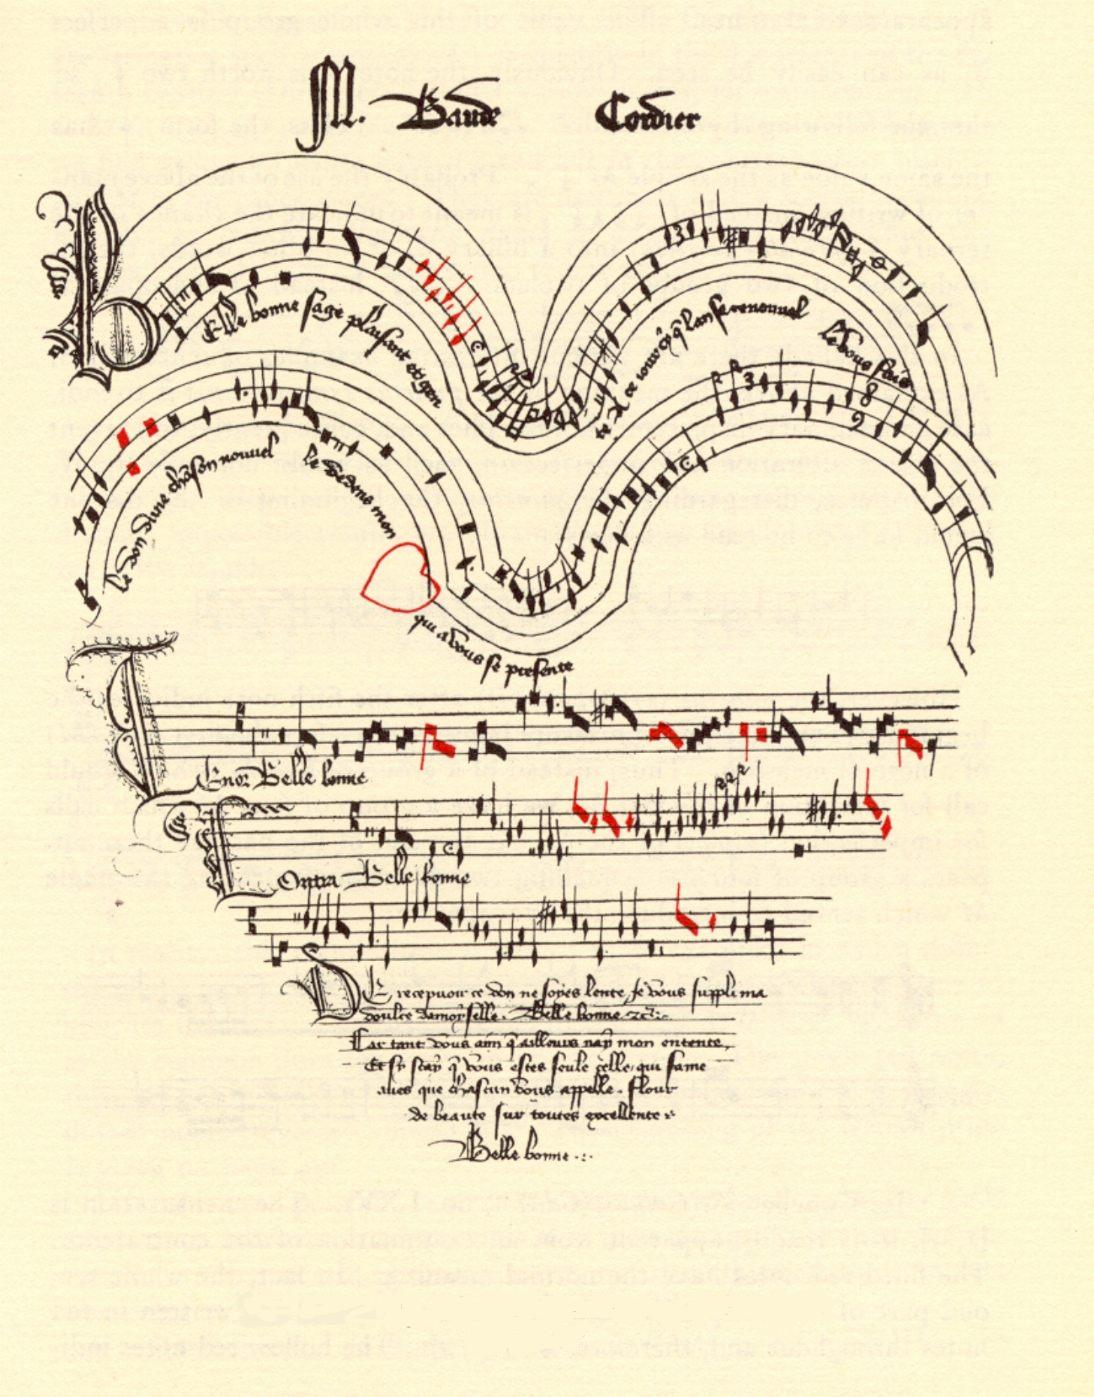 M. Baude Cordier
Belle bonne sage plaisant et gen
te A ce iour cy q̃ lan se renouuel
le Vous fais
le don dune chãson nouuel
le Dedens mon
qui a vous se presente
Tenor Belle bonne
Contra Belle bonne
De recepuoir ce don ne soyes lente Je vous suppli ma
doulce damoyselle. Belle bonne
Car tant vous aim q̃ aillours nay mon entente
Et sy scay q̃ vous estes seule celle qui fame
aues que chascun vous appelle. Flour
de beaute sur toutes excellente
Belle bonne